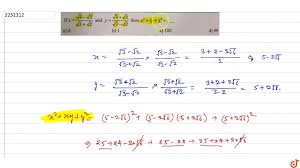 2251312
If x = √3-√2/√3+√2 and y = √3+√2/√3-√2, then x² + xy + y² =
a) 0 b) 1 c) 100 d) 99
x = √3-√2/√3+√2 × √3-√2/√3-√2 = 3+2-2√6/1 = 5-2√6
y = √3+√2/√3-√2 × √3+√2/√3+√2 = 3+2+2√6/3-2 = 5+2√6.
x²+xy+y² = (5-2√6)² + (5-2√6)(5+2√6) + (5+2√6)²
⇒ 25+24-20√6 + 25-24 + 25+24+20√6